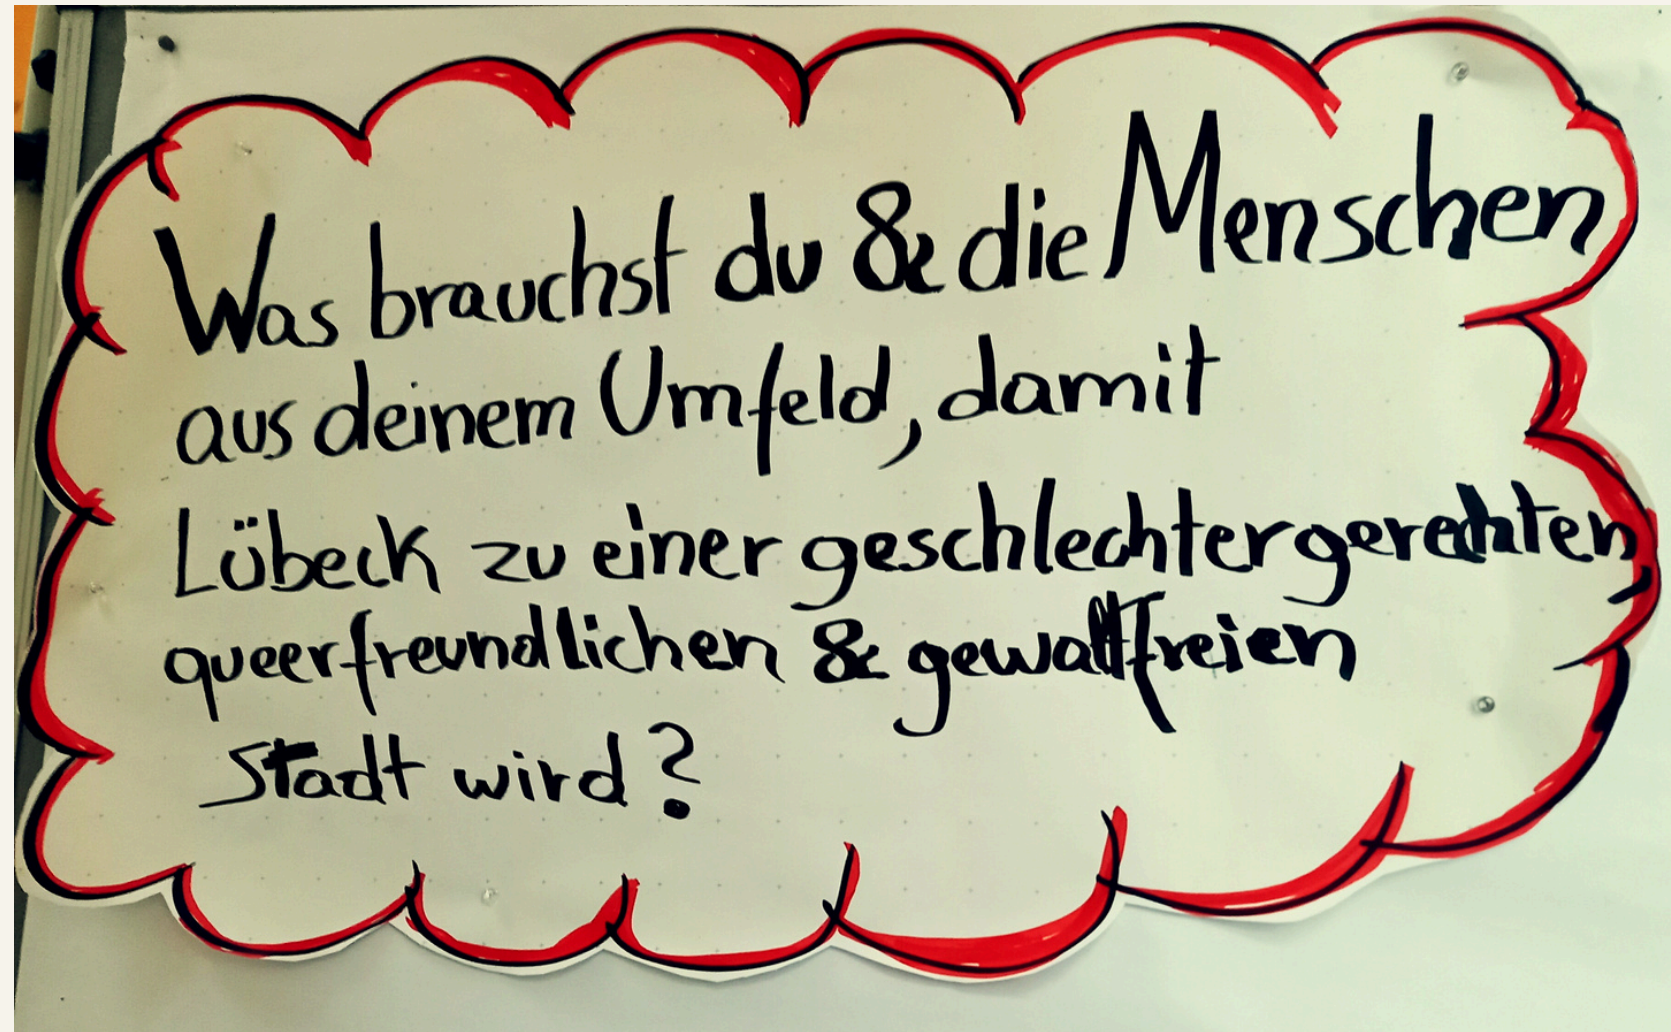 Was brauchst du & die Menschen
aus deinem Umfeld, damit
Lübeck zu einer geschlechtergerechten,
queerfreundlichen & gewaltfreien
Stadt wird?